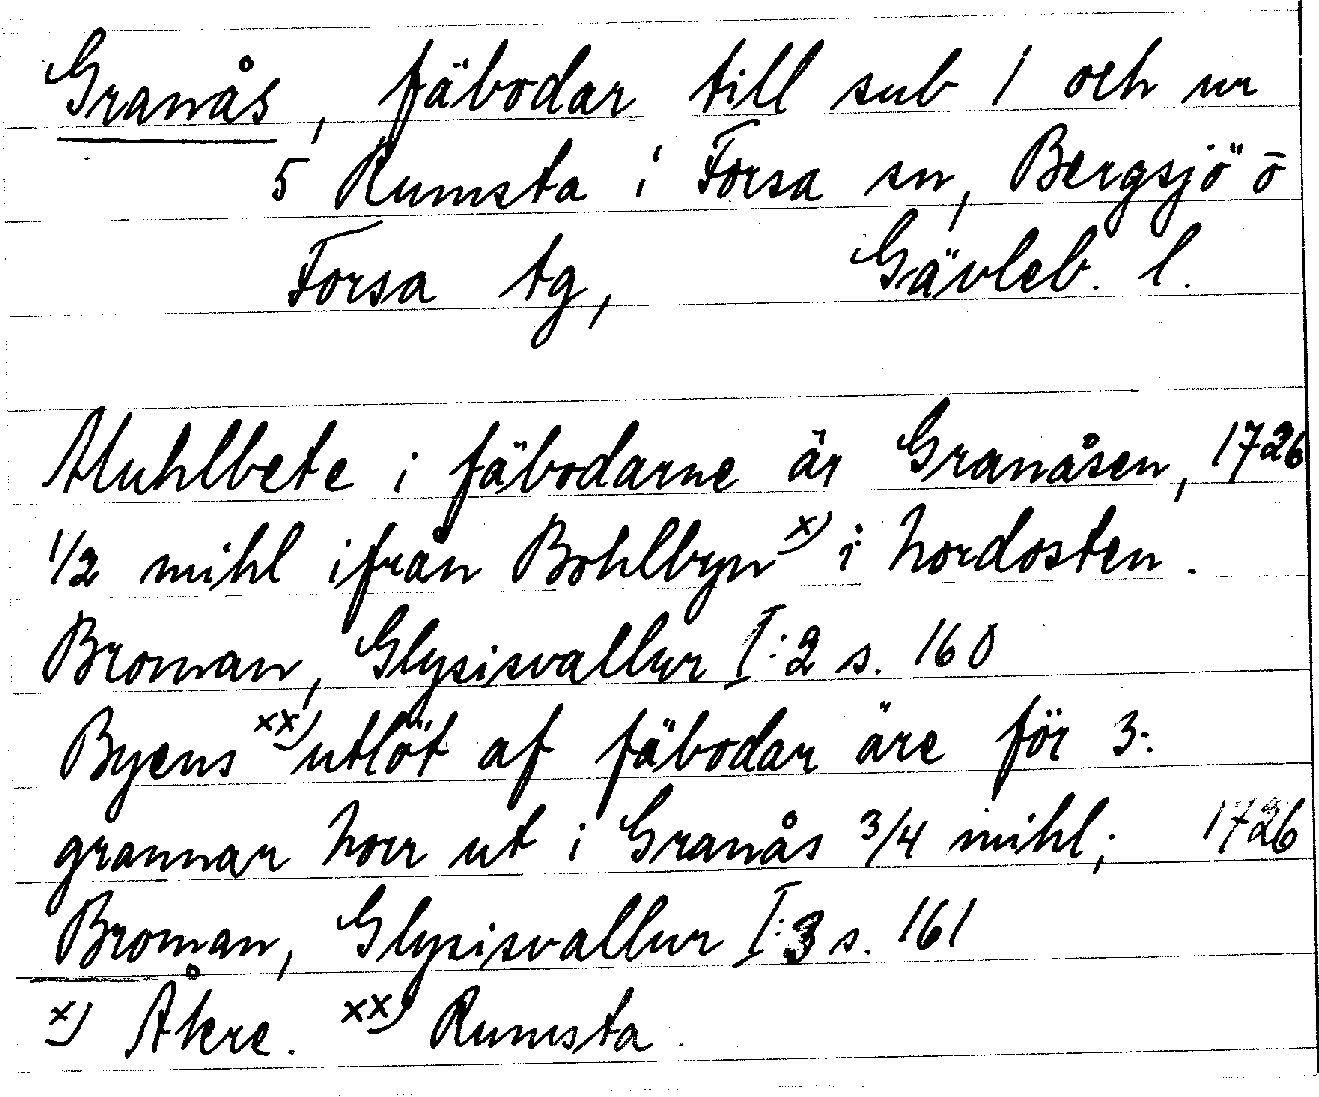 Granås, fäbodar till sub 1 och nr
5 Rumsta i Forsa sn, Bergsjö o
Forsa tg, Gävleb. l.
Muhlbete i fäbodarne är Granåsen, 1726
1/2 mihl ifrån Bohlbyn x) i Nordosten.
Broman, Glysisvallur I:2 s. 160
Byens xx) utlöt af fäbodar äre för 3.
grannar Norr ut i Granås 3/4 mihl; 1726
Broman, Glysisvallur I:3 s. 161
x) Åkre. xx) Rumsta.